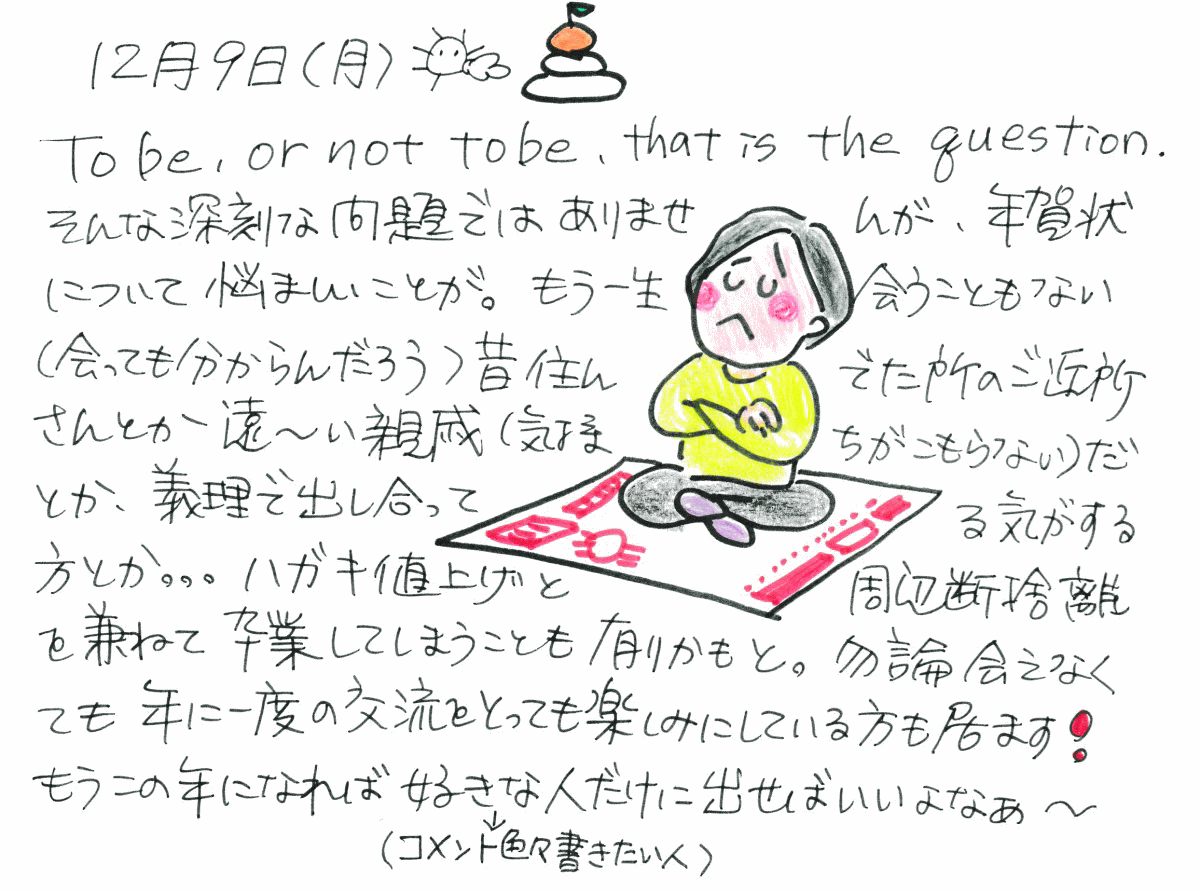 12月9日(月)
To be, or not to be, that is the question.
そんな深刻な問題ではありませんが、年賀状
について悩ましいことが。もう一生会うこともない
(会っても分からんだろう)昔住んでた所のご近所
さんとか、遠〜い親戚(気持ちがこもらない)だ
とか、義理で出し合ってる気がする
方とか。。。ハガキ値上げと周辺断捨離
を兼ねて卒業してしまうことも有りかもと。勿論会えなく
ても年に一度の交流をとっても楽しみにしている方も居ます!
もうこの年になれば好きな人だけに出せばいいよなぁ〜
(コメント色々書きたい人)